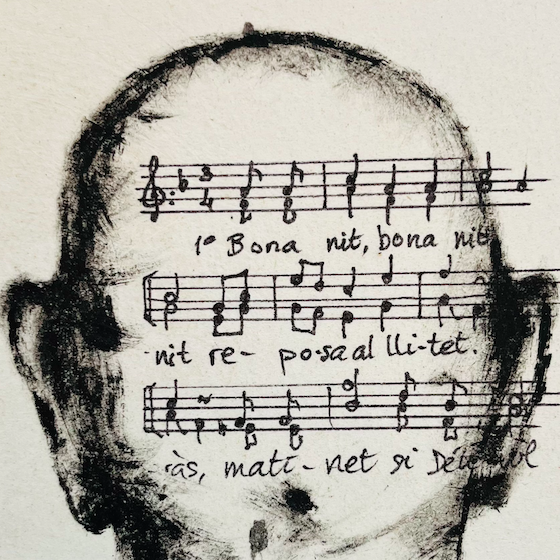 1º Bona nit, bona nit
nit re- po-sa al lli-tet.
às, mati-net si Déu vol